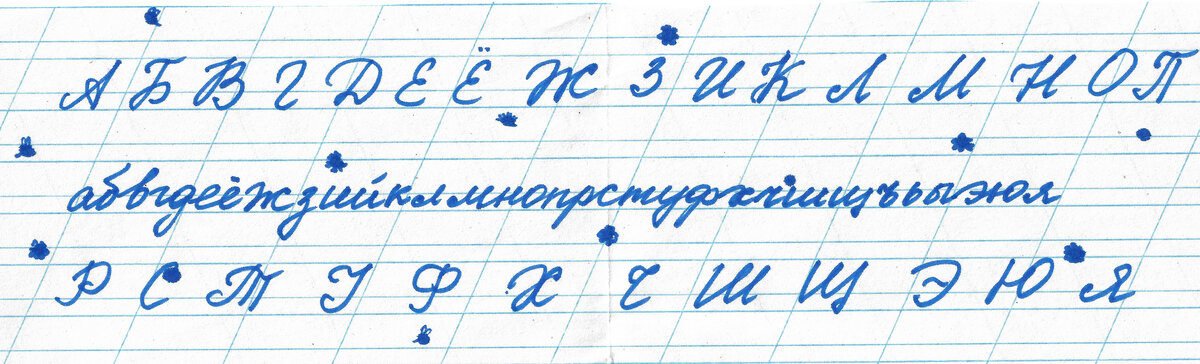 А Б В Г Д Е Ё Ж З И К Л М Н О П
абвгдеёжзийклмнопрстуфхчшщъьыэюя
Р С Т У Ф Х Ч Ш Щ Э Ю Я